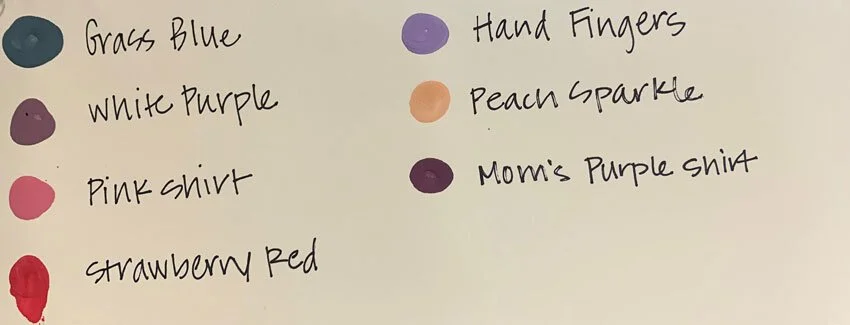 Grass Blue
White Purple
Pink Shirt
Strawberry Red
Hand Fingers
Peach Sparkle
Mom's Purple Shirt